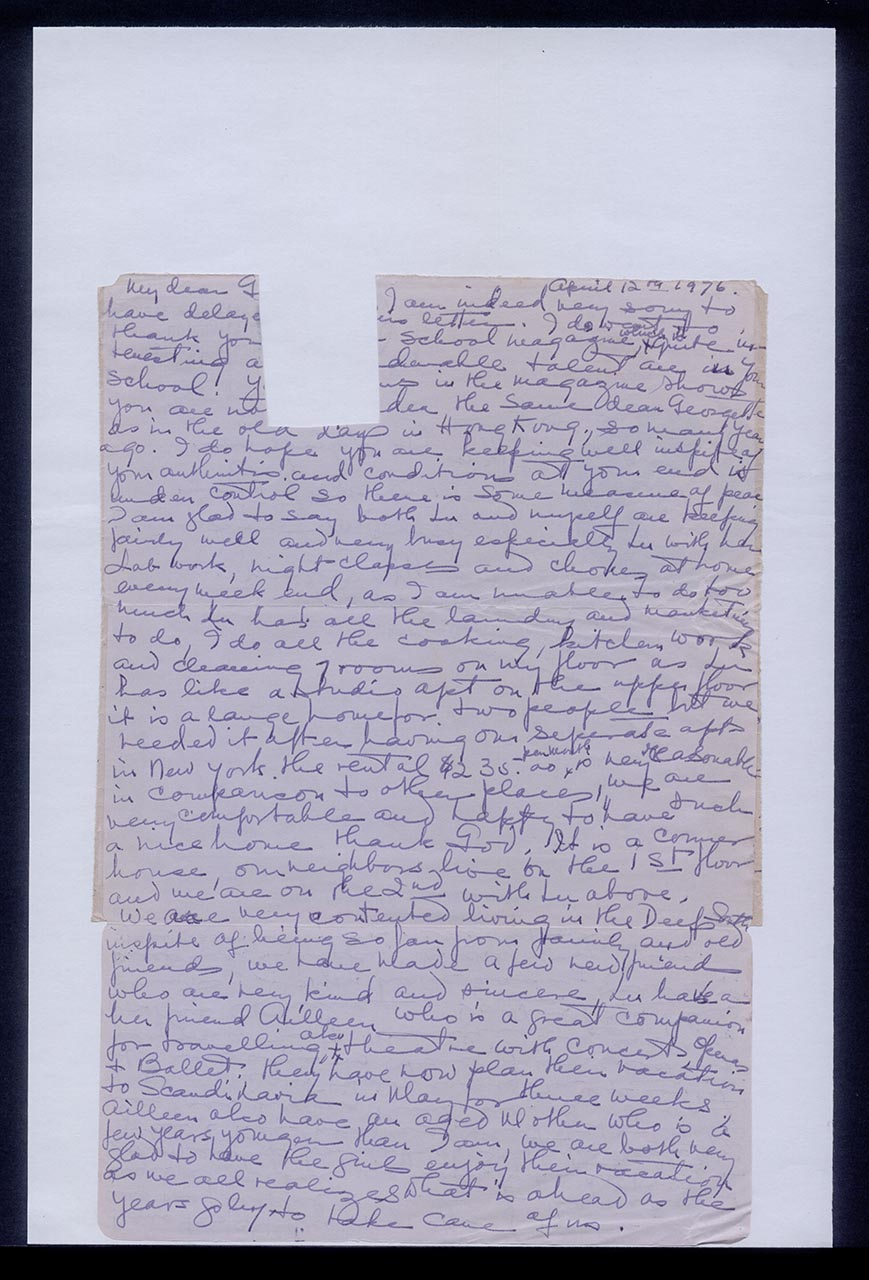 My dear G April 12th 1976.
I am indeed very sorry to
have delaye letter. I do want to
thank you School magazine, which is quite in
teresting a derable talent are in your
School! Y in the magazine shows
you are no the same dear Georgette
as in the old days in Hong Kong, so many year
ago. I do hope you are keeping well inspite of
your authritis and conditions at your end is
under control so there is some measure of peac
I am glad to say both Lu and myself are keeping
fairly well and very busy especially Lu with her
Lab work, night classes and chores at home
every week end, as I am unable to do too
much Lu has all the laundry and marketing
to do, I do all the cooking, kitchen work
and cleaning 7 rooms on my floor as Lu
has like a studio apt on the upper floor
it is a large home for two people but we
needed it after having our seperate apts
in New York. the rental $235.00 per month is very reasonable
in comparison to other places, we are
very comfortable and happy to have such
a nice home thank God. It is a corner
house, our neighbors live on the 1st floor
and we are on the 2nd with Lu above.
We are very contented living in the Deep South
inspite of being so far from family and old
friends, we have made a few new friend
who are very kind and sincere, Lu has a
her friend Ailleen who is a great companion
for travelling, also + theatre with Concerts Operas
+ Ballet. they have now plan their vacation
to Scandinavia in May for three weeks
Ailleen also have an aged Mother who is a
few years younger than I am, we are both very
glad to have the girls enjoy their vacation
as we all realizes what is ahead as the
years go by to take care of us.